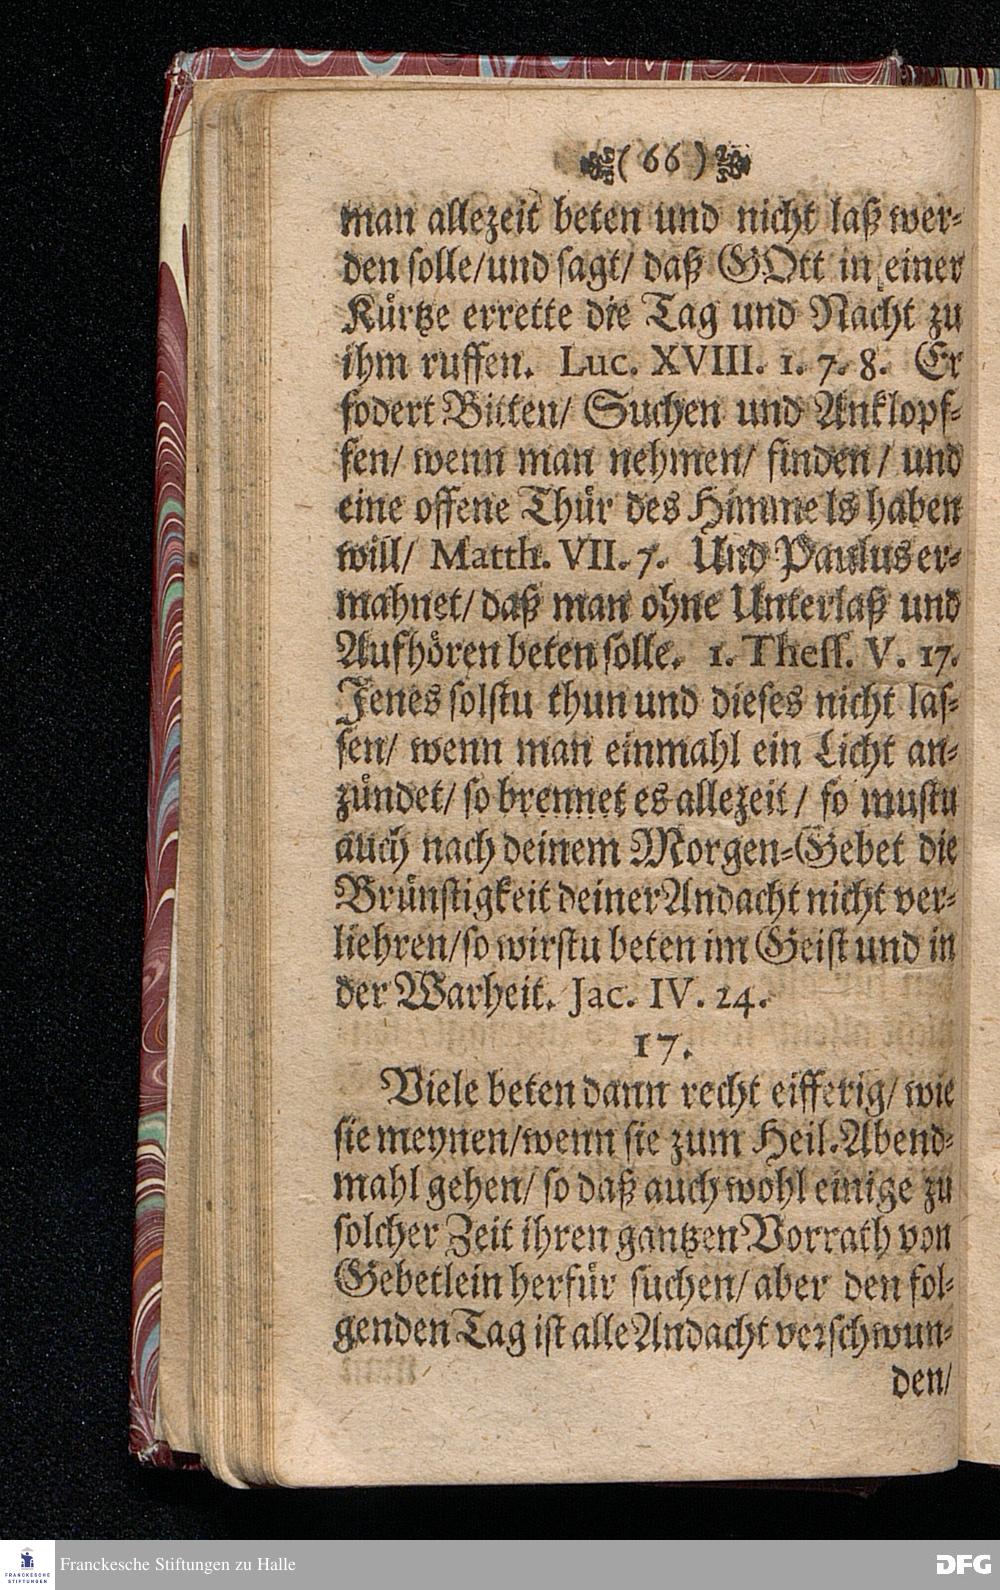 ( 66 )
man allezeit beten und nicht laß wer-
den solle/und sagt/ daß GOtt in einer
Kürtze errette die Tag und Nacht zu
ihm ruffen. Luc. XVIII. 1. 7. 8. Er
fodert Bitten/ Suchen und Anklopf-
fen/ wenn man nehmen/ finden / und
eine offene Thür des Himmels haben
will/ Matth. VII. 7. Und Paulus er-
mahnet/ daß man ohne Unterlaß und
Aufhören beten solle. 1. Thess. V. 17.
Jenes solstu thun und dieses nicht las-
sen/ wenn man einmahl ein Licht an-
zündet/ so brennet es allezeit / so mustu
auch nach deinem Morgen-Gebet die
Brünstigkeit deiner Andacht nicht ver-
liehren/so wirstu beten im Geist und in
der Warheit. Jac. IV. 24.
17.
Viele beten dann recht eifferig/ wie
sie meynen/wenn sie zum Heil. Abend-
mahl gehen/ so daß auch wohl einige zu
solcher Zeit ihren gantzen Vorrath von
Gebetlein herfür suchen/ aber den fol-
genden Tag ist alle Andacht verschwun-
den/
FRANCKESCHE
STIFTUNGEN
Franckesche Stiftungen zu Halle
DFG